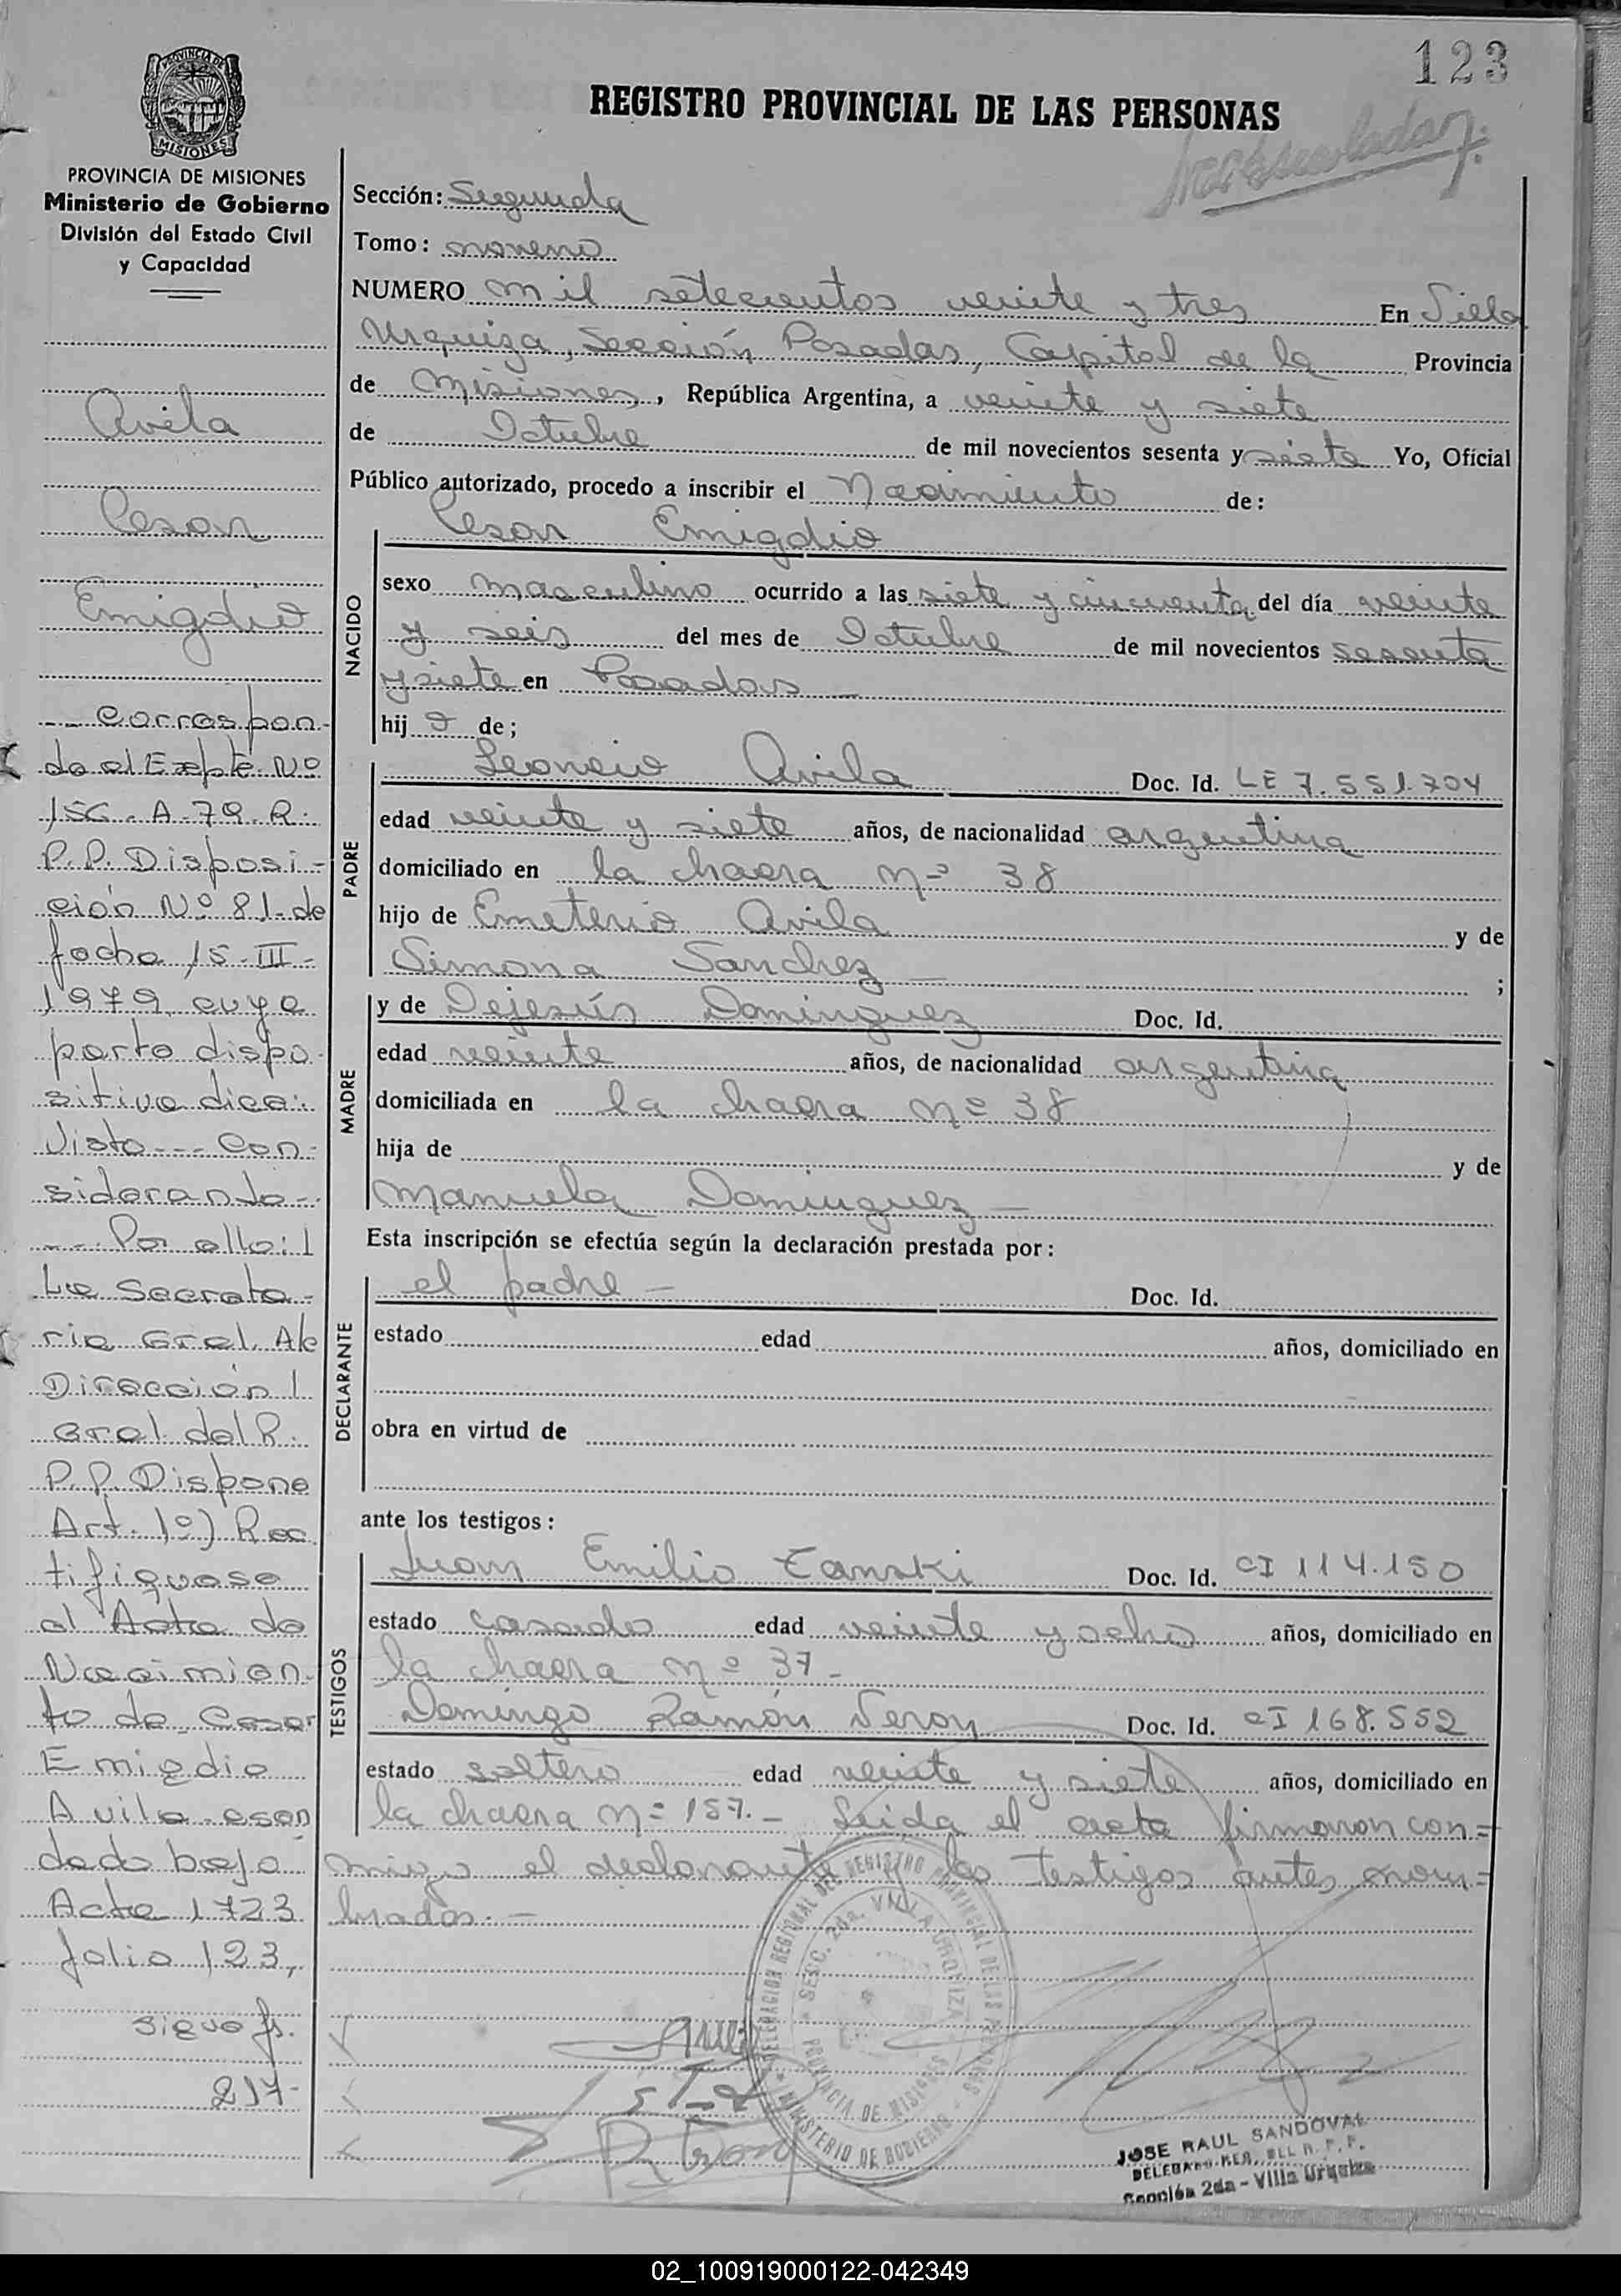 123
REGISTRO PROVINCIAL DE LAS PERSONAS
PROVINCIA DE MISIONES
Ministerio de Gobierno
División del Estado Civil
y Capacidad
Avila
Cesar
Emigdio
-- Correspon-
de al Expte Nº
156-A-79-R.
P.P. Disposi-
ción Nº 81-de
fecha 15-III-
1979, cuya
parte dispo-
sitiva dice:
Visto --- Con-
siderando -
--- Por ello: l
La Secreta-
ria Gral. A/c
Dirección l
Gral del R.
P.P. Dispone
Art. 1º) Rec
tifiquese
el Acta de
Nacimien-
to de Cesar
Emigdio
Avila-asen
dado bajo
Acta 1723
folio 123,
sigue fs.
217-
Sección: Segunda
Tomo: noveno
NUMERO mil setecientos veinte y tres En Villa
Urquiza, Sección Posadas, Capital de la Provincia
de Misiones, República Argentina, a veinte y siete
de Octubre de mil novecientos sesenta y siete Yo, Oficial
Público autorizado, procedo a inscribir el Nacimiento de:
NACIDO
Cesar Emigdio
sexo masculino ocurrido a las siete y cincuenta del día veinte
y seis del mes de Octubre de mil novecientos sesenta
y siete en Posadas —
hij o de;
PADRE
Leoncio Avila Doc. Id. LE 7.551.704
edad veinte y siete años, de nacionalidad argentina
domiciliado en la chacra nº 38
hijo de Emeterio Avila y de
Simona Sanchez — ;
MADRE
y de Dejesús Dominguez Doc. Id.
edad veinte años, de nacionalidad argentina
domiciliada en la chacra nº 38
hija de y de
Manuela Dominguez —
Esta inscripción se efectúa según la declaración prestada por:
DECLARANTE
el padre — Doc. Id.
estado edad años, domiciliado en
obra en virtud de
ante los testigos:
TESTIGOS
Juan Emilio Zanski Doc. Id. CI 114.150
estado casado edad veinte y ocho años, domiciliado en
la chacra nº 37-
Domingo Ramón Veron Doc. Id. CI 168.552
estado soltero edad veinte y siete años, domiciliado en
la chacra nº 157.- Leida el acta firmaron con=
migo el declarante y los testigos antes nom=
brados.—
DELEGACION REGIONAL DEL REGISTRO PROVINCIAL DE LAS PERSONAS
MINISTERIO DE GOBIERNO
SECC. 2da. VILLA URQUIZA
PROVINCIA DE MISIONES
JOSE RAUL SANDOVAL
DELEGADO REG. DEL R. P. P.
Sección 2da - Villa Urquiza
02_100919000122-042349